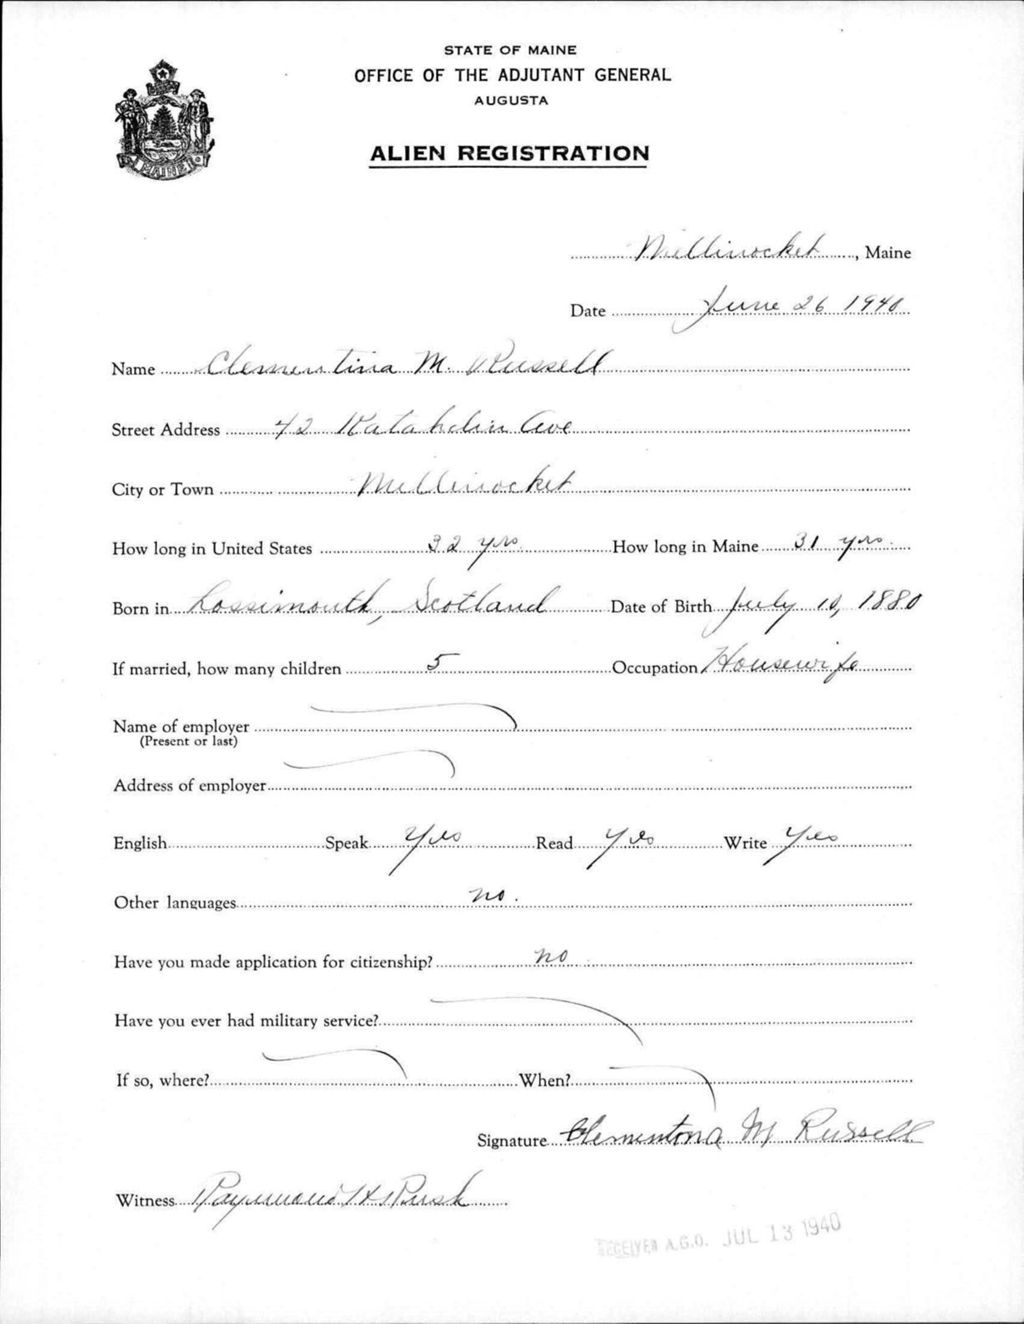 STATE OF MAINE
OFFICE OF THE ADJUTANT GENERAL
AUGUSTA
ALIEN REGISTRATION
MAINE
Millinocket, Maine
Date June 26 1940
Name Clementina M. Russell
Street Address 42 Katahdin Ave
City or Town Millinocket
How long in United States 32 yrs How long in Maine 31 yrs.
Born in Lossimouth, Scotland Date of Birth July 10, 1880
If married, how many children 5 Occupation Housewife
Name of employer
(Present or last)
Address of employer
English Speak Yes Read Yes Write Yes
Other languages no.
Have you made application for citizenship? no
Have you ever had military service?
If so, where? When?
Signature Clementina M Russell
Witness Raymond H Rush
RECEIVED A.G.O. JUL 13 1940